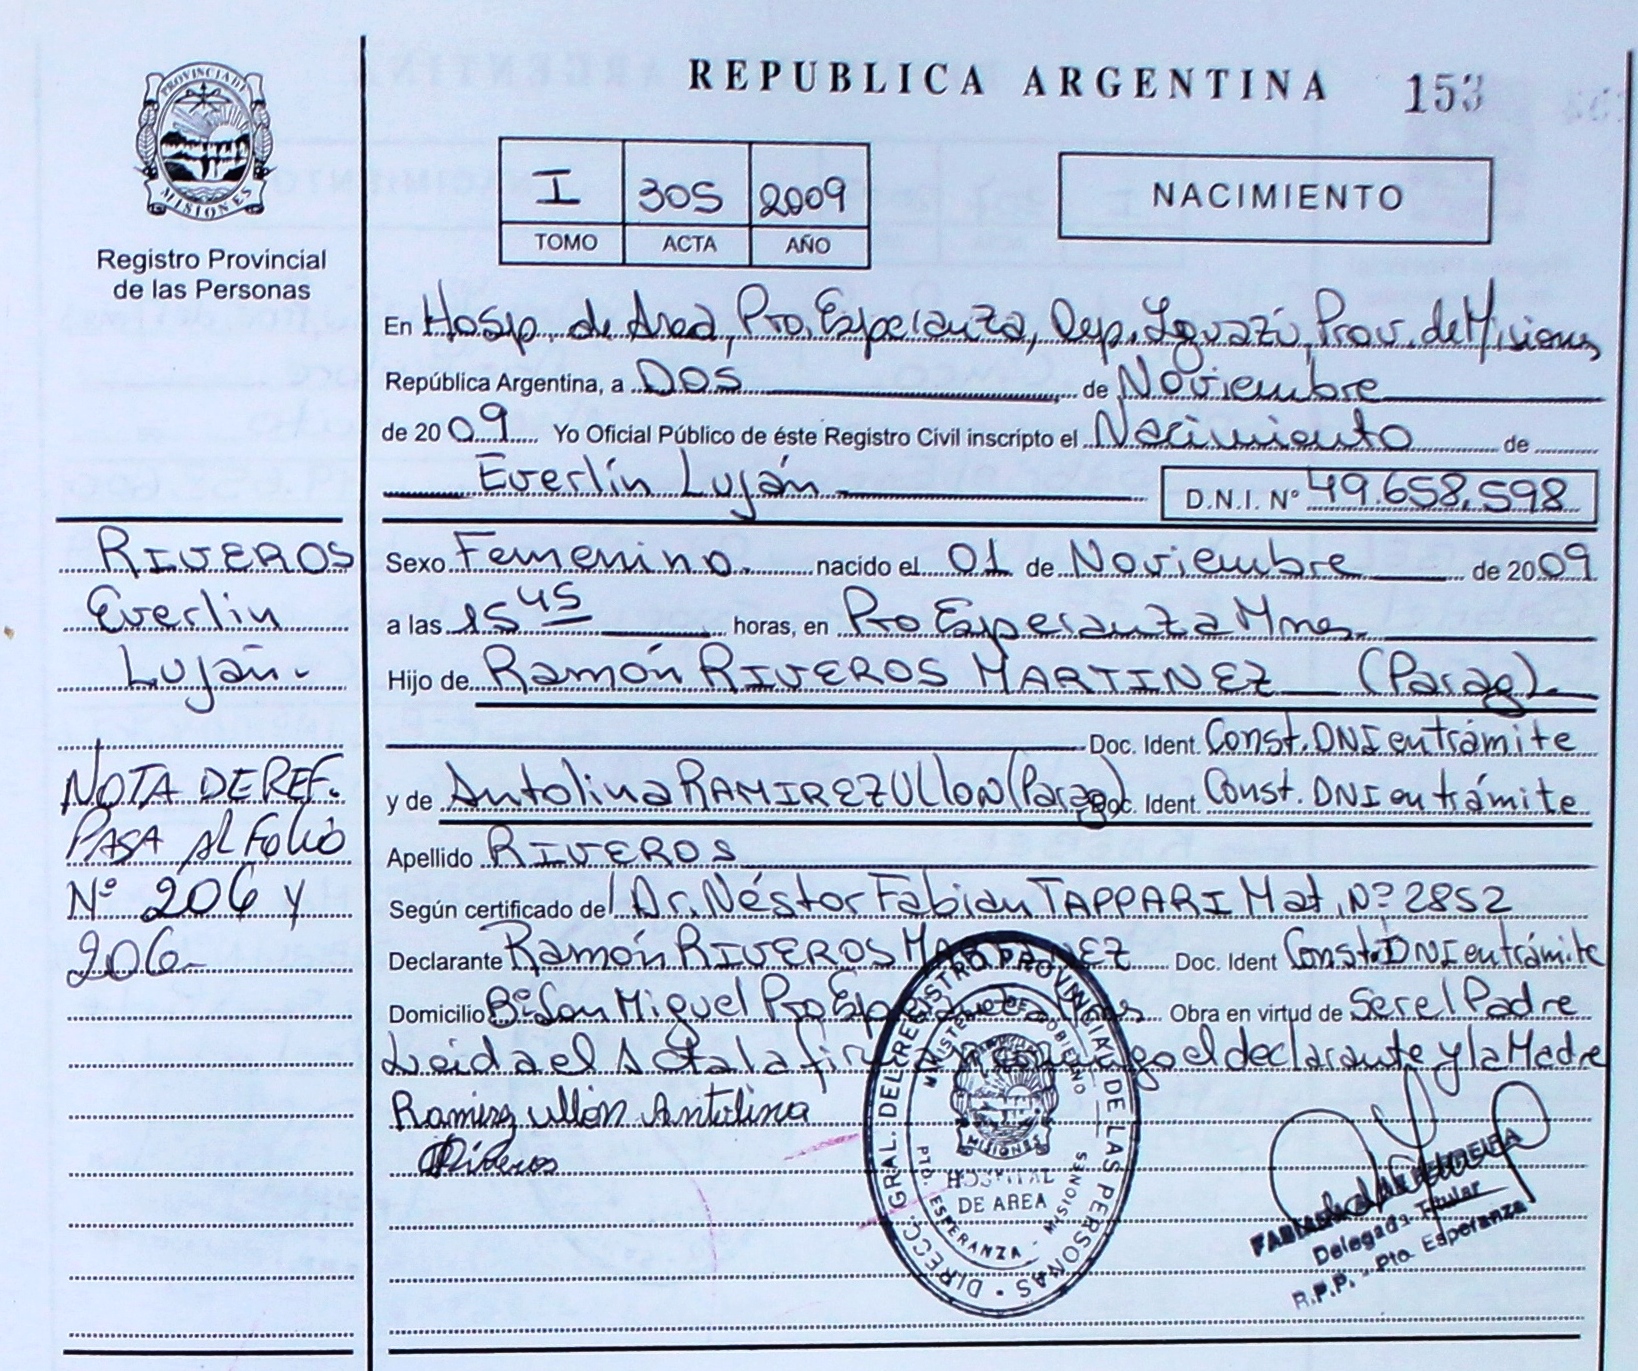 REPUBLICA ARGENTINA 153
PROVINCIA DE
MISIONES
Registro Provincial
de las Personas
I 305 2009
TOMO ACTA AÑO
NACIMIENTO
En Hosp. de Area, Pto. Esperanza, Dep. Iguazú, Prov. de Misiones
República Argentina, a Dos de Noviembre
de 2009 Yo Oficial Público de éste Registro Civil inscripto el Nacimiento de
Everlín Luján D.N.I. Nº 49.658.598
RIVEROS
Everlin
Luján.-
NOTA DE REF.
PASA AL Folio
Nº 206 y
206-
Sexo Femenino. nacido el 01 de Noviembre de 2009
a las 15 45 horas, en Pto Esperanza Mnes.
Hijo de Ramón RIVEROS MARTINEZ (Parag).
Doc. Ident. Const. DNI en trámite
y de Antolina RAMIREZ Ullon (Parag) Doc. Ident. Const. DNI en trámite
Apellido RIVEROS
Según certificado del Dr. Néstor Fabian TAPPARI Mat. Nº 2852
Declarante Ramón RIVEROS MARTINEZ Doc. Ident Const. DNI en trámite
Domicilio Bº San Miguel Pto Esperanza Mnes Obra en virtud de Ser el Padre
Leida el Acta la firman conmigo el declarante y la Madre
Ramirez ullón Antolina
Riveros
DIRECC. GRAL. DEL REGISTRO PROVINCIAL DE LAS PERSONAS
MINISTERIO DE GOBIERNO
MISIONES
HOSPITAL
DE AREA
PTO. ESPERANZA - MISIONES
FERREIRA
Delegada Titular
R.P.P. - Pto. Esperanza